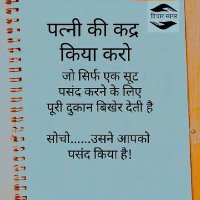 विचार सागर
पत्नी की कद्र
किया करो
जो सिर्फ एक सूट
पसंद करने के लिए
पूरी दुकान बिखेर देती है
सोचो......उसने आपको
पसंद किया है!